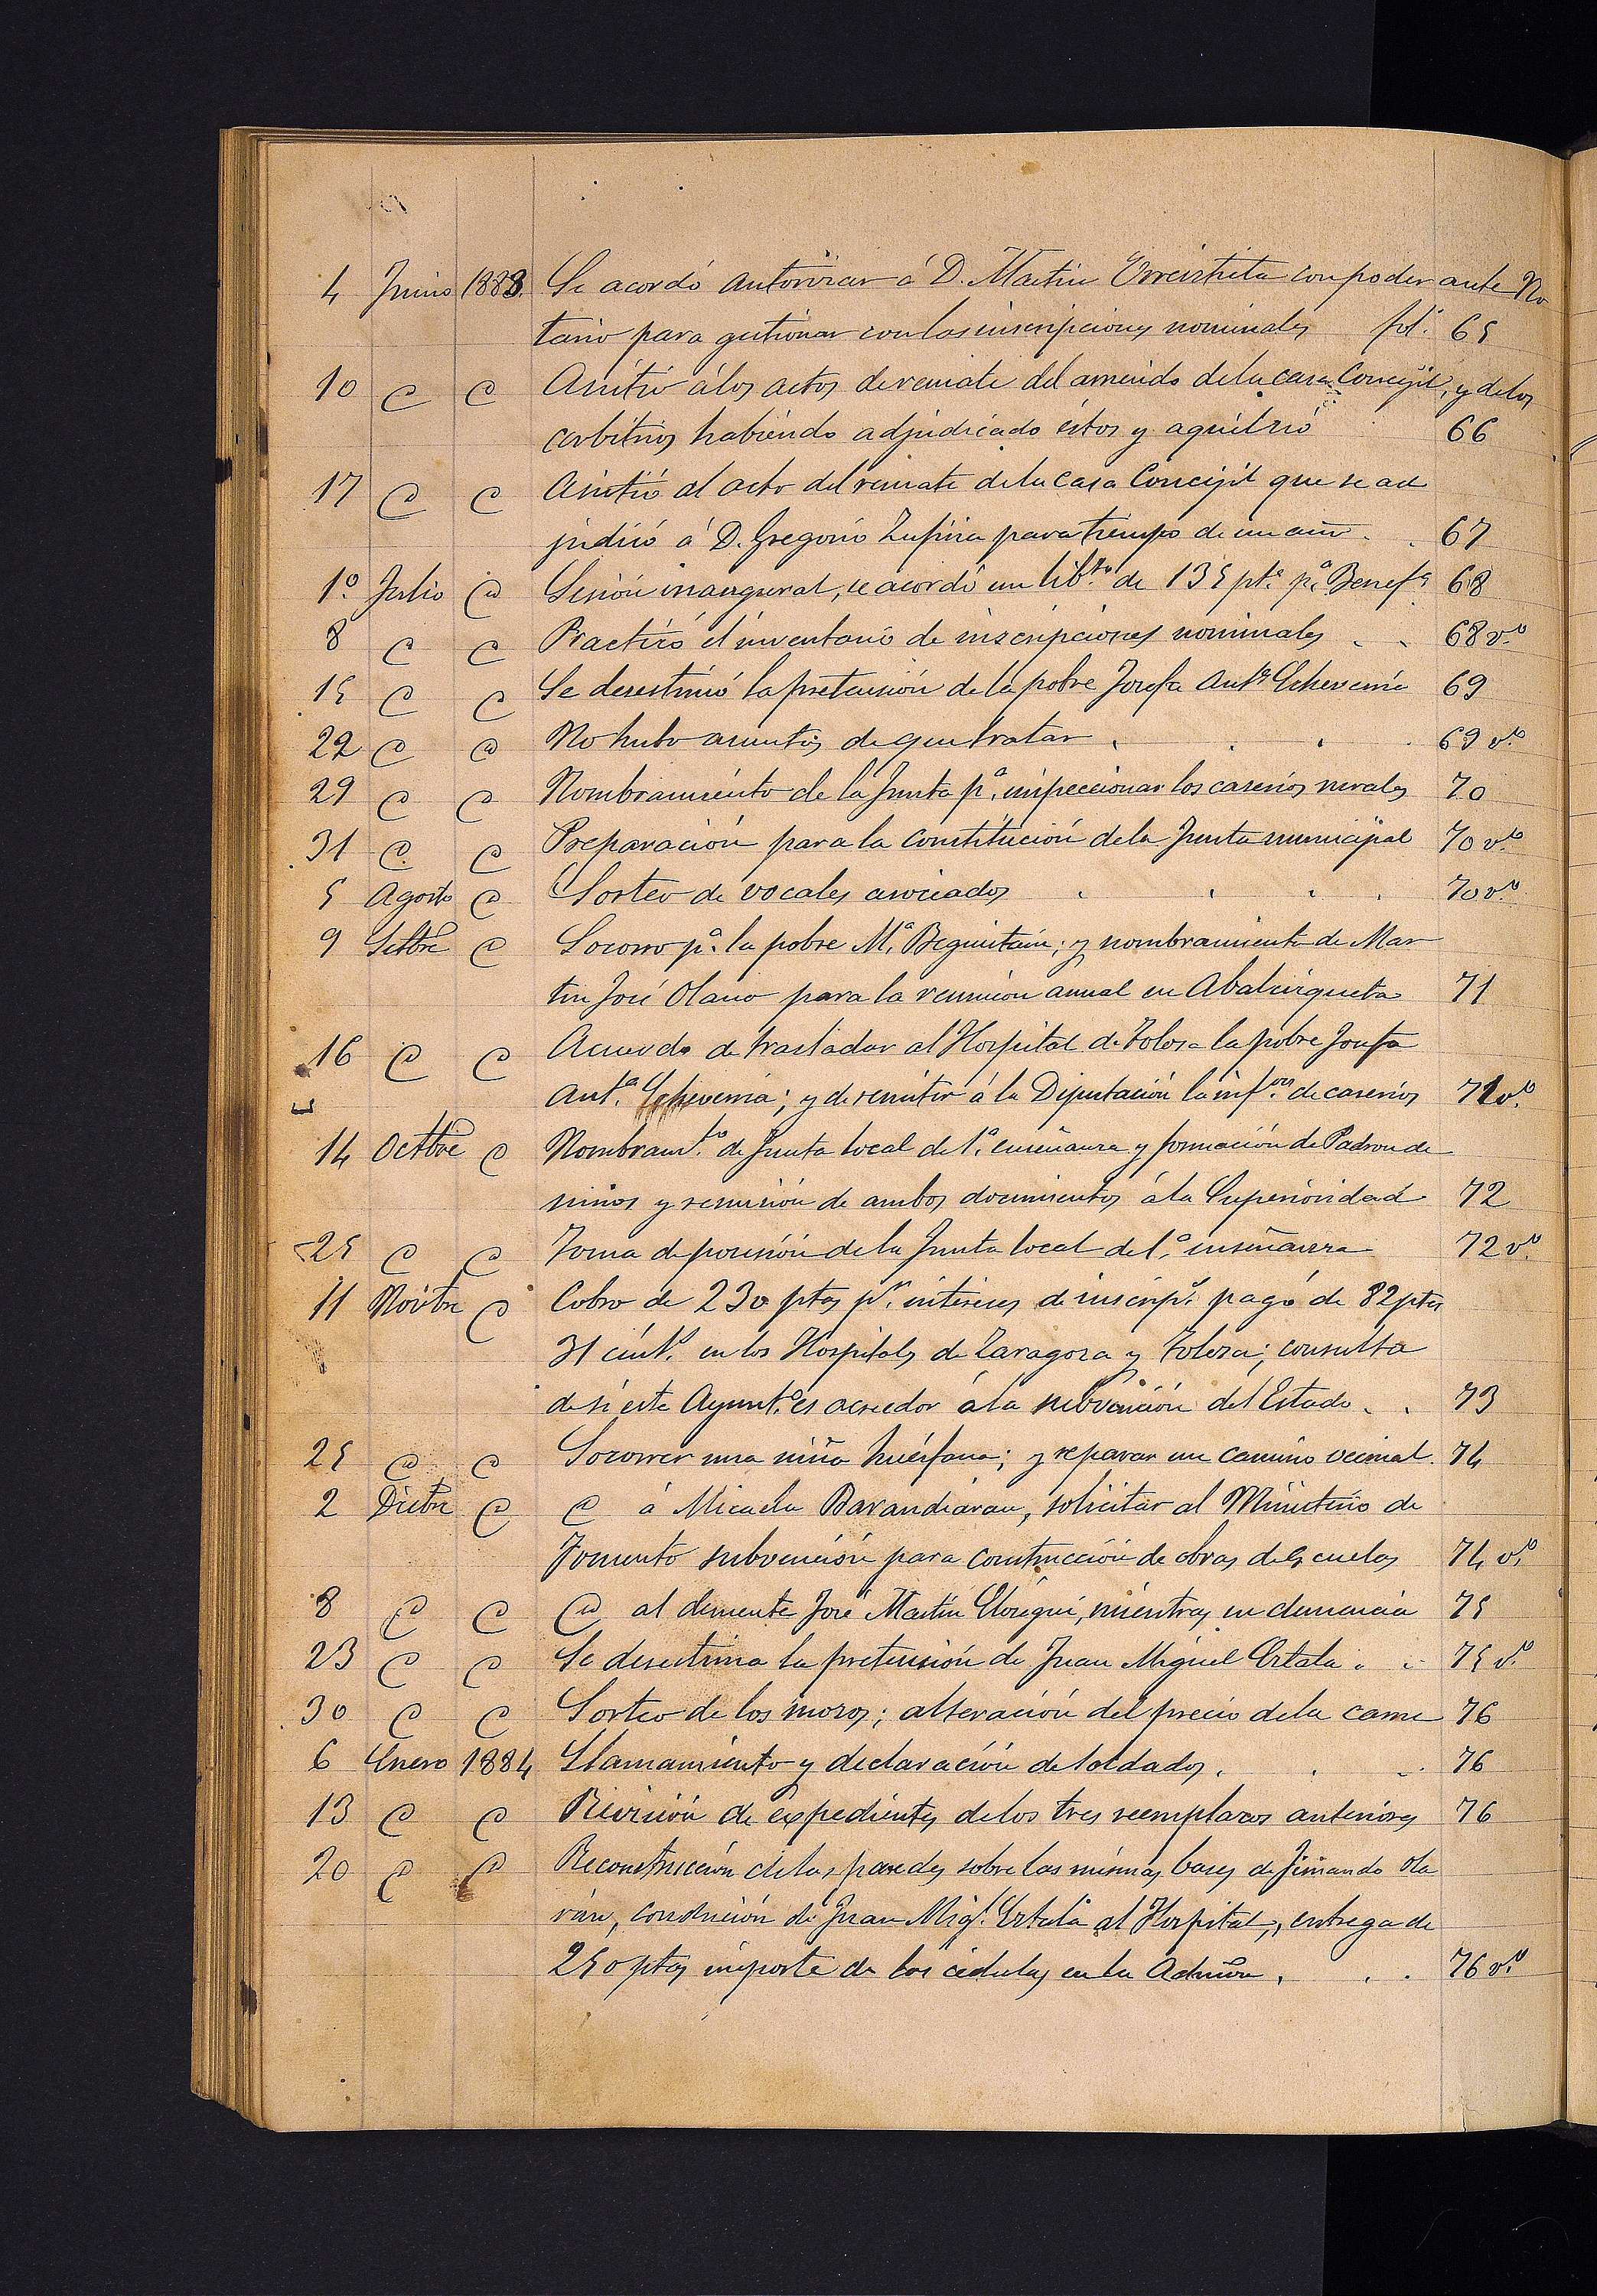 4 Junio 1883. Se acordó autorizar á D. Martin Orreistieta con poder ante No
tario para gestionar con las inscripciones nominales fol.º 65
10 @ @ Asistió á los actos de remate del arriendo de la casa Concejil, y de los
arbitrios habiendo adjudicado éstos y aquél nó 66
17 @ @ Asistió al acto del remate de la Casa Concejil que se ad
judicó á D. Gregorio Zufiria para tiempo de un año . . 67
1º Julio @ Sesión inaugural, se acordó un lib.to de 135 pt.s p.ª Benef.ª 68
8 @ @ Practicó el inventario de inscripciones nominales . . 68 v.to
15 @ @ Se desestimó la pretensión de la pobre Josefa Ant.ª Echeverria 69
22 @ @ No hubo asuntos de que tratar . . . . 69 v.to
29 @ @ Nombramiento de la Junta p.ª inspeccionar los caserios rurales 70
31 @ @ Preparación para la constitución de la Junta municipal 70 v.to
5 Agosto @ Sorteo de vocales asociados . . . . 70 v.to
9 Setbre @ Socorro p.ª la pobre M.ª Beguiristain; y nombramiento de Mar
tin José Olano para la reunion anual en Abalcisqueta 71
16 @ @ Acuerdo de trasladar al Hospital de Tolosa la pobre Josefa
Ant.ª Echeverria; y de remitir á la Diputación la inf.on de caserios 71 v.to
14 Octbre @ Nombram.to de Junta local de 1.ª enseñanza y formación de Padron de
niños y remisión de ambos documentos á la Superioridad 72
25 @ @ Toma de posesión de la Junta local de 1.ª enseñanza 72 v.to
11 Novbre @ Cobro de 230 ptas p.r intereses de inscrip.s pago de 82 ptas
31 cént.s en los Hospitales de Zaragoza y Tolosa; consulta
de si este Ayunt.º es acreedor á la subvención del Estado . . 73
25 @ @ Socorrer una niña huérfana; y reparar un camino vecinal. 74
2 Dicbre @ @ á Micaela Barandiaran, solicitar al Ministerio de
Fomento subvención para construcción de obras de Escuelas 74 v.to
8 @ @ @ al demente José Martin Elósegui, mientras su demencia 75
23 @ @ Se desestima la pretensión de Juan Miguel Ertala . . 75 v.to
30 @ @ Sorteo de los mozos; alteración del precio de la carne 76
6 Enero 1884 Llamamiento y declaración de soldados . . . 76
13 @ @ Revisión de expedientes de los tres reemplazos anteriores 76
20 @ @ Reconstrucción de las paredes sobre las mismas bases de Fernando Ola
rán, conducción de Juan Mig.l Ertala al Hospital, entrega de
250 ptas importe de las cédulas en la Admón. . . 76 v.to